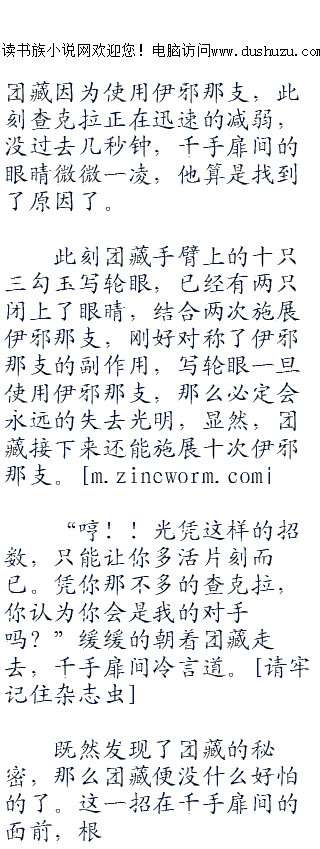 读书族小说网欢迎您！电脑访问www.dushuzu.com
团藏因为使用伊邪那支，此
刻查克拉正在迅速的减弱，
没过去几秒钟，千手扉间的
眼睛微微一凌，他算是找到
了原因了。
此刻团藏手臂上的十只
三勾玉写轮眼，已经有两只
闭上了眼睛，结合两次施展
伊邪那支，刚好对称了伊邪
那支的副作用，写轮眼一旦
使用伊邪那支，那么必定会
永远的失去光明，显然，团
藏接下来还能施展十次伊邪
那支。[m.zincworm.com]
“哼！！光凭这样的招
数，只能让你多活片刻而
已。凭你那不多的查克拉，
你认为你会是我的对手
吗？”缓缓的朝着团藏走
去，千手扉间冷言道。[请牢
记住杂志虫]
既然发现了团藏的秘
密，那么团藏便没什么好怕
的了。这一招在千手扉间的
面前，根